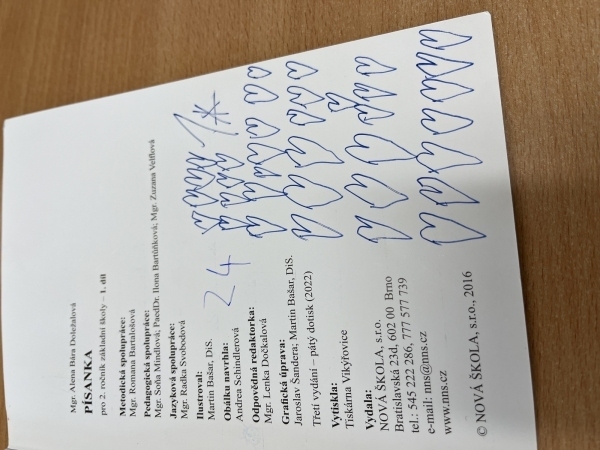 Mgr. Alena Bára Doležalová
PÍSANKA
pro 2. ročník základní školy – 1. díl
Metodická spolupráce:
Mgr. Romana Bartalošová
Pedagogická spolupráce:
Mgr. Soňa Mindlová; PaedDr. Ilona Bartůňková; Mgr. Zuzana Velflová
Jazyková spolupráce:
Mgr. Radka Svobodová
Ilustroval:
Martin Bašar, DiS.
Obálku navrhla:
Andrea Schindlerová
Odpovědná redaktorka:
Mgr. Lenka Dočkalová
Grafická úprava:
Jaroslav Šandera; Martin Bašar, DiS.
Třetí vydání – pátý dotisk (2022)
Vytiskla:
Tiskárna Vikýřovice
Vydala:
NOVÁ ŠKOLA, s.r.o.
Bratislavská 23d, 602 00 Brno
tel.: 545 222 286, 777 577 739
e-mail: nns@nns.cz
www.nns.cz
© NOVÁ ŠKOLA, s.r.o., 2016
24